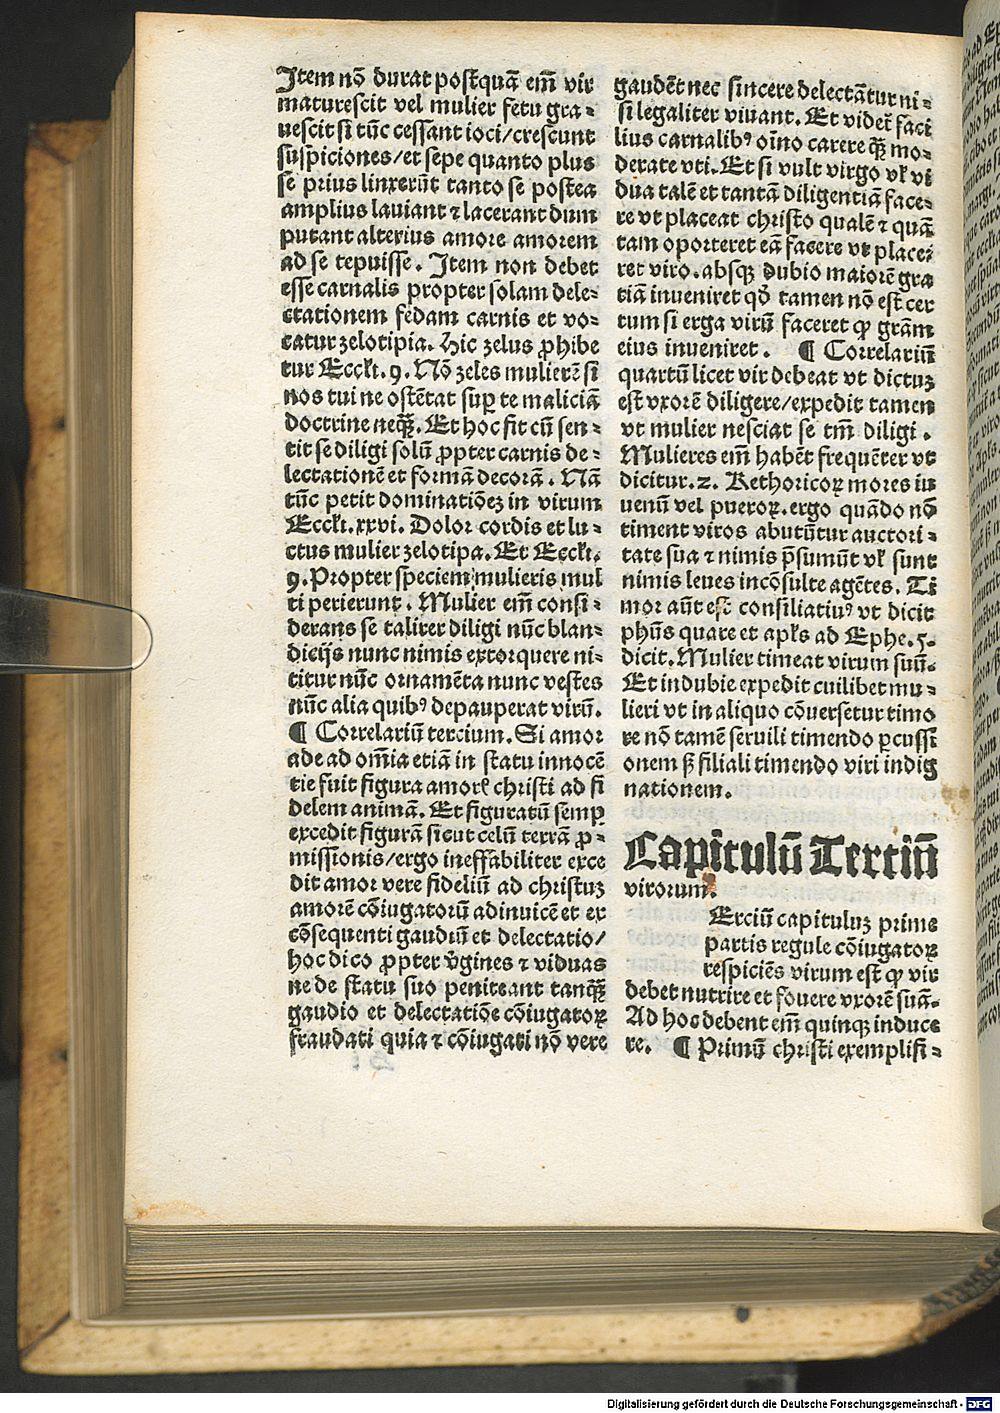 Item nō durat postquā em̄ vir
maturescit vel mulier fetu gra-
uescit si tūc cessant ioci/crescunt
suspiciones/et sepe quanto plus
se prius linxerūt tanto se postea
amplius lauiant ⁊ lacerant dum
putant alterius amore amorem
ad se tepuisse. Item non debet
esse carnalis propter solam dele-
ctationem fedam carnis et vo-
catur zelotipia. Hic zelus ꝓhibe
tur Eccłi. 9. Nō zeles mulierē si
nos tui ne ostētat suꝑ te maliciā
doctrine neqꝫ̄. Et hoc fit cū sen-
tit se diligi solū ꝓpter carnis de-
lectationē et formā decorā. Nā
tūc petit dominatiōeꝫ in virum
Eccłi. xxvi. Dolor cordis et lu-
ctus mulier zelotipa. Et Eccłi.
9. Propter speciem mulieris mul
ti perierunt. Mulier em̄ consi-
derans se taliter diligi nūc blan-
dicijs nunc nimis extorquere ni-
titur nūc ornamēta nunc vestes
nūc alia quibꝰ depauperat virū.
¶ Correlariū tercium. Si amor
ade ad om̄ia etiā in statu innocē
tie fuit figura amorꝭ christi ad fi
delem animā. Et figuratū semꝑ
excedit figurā sicut celū terrā ꝓ-
missionis/ergo ineffabiliter exce
dit amor vere fideliū ad christuꝫ
amorē cōiugatorū adinuicē et ex
cōsequenti gaudiū et delectatio/
hoc dico ꝓpter v̄gines ⁊ viduas
ne de statu suo peniteant tanqꝫ̄
gaudio et delectatiōe cōiugatoꝝ
fraudati quia ⁊ cōiugati nō vere
gaudēt nec sincere delectātur ni-
si legaliter viuant. Et videt̄ faci
lius carnalibꝰ oīno carere qꝫ̄ mo-
derate vti. Et si vult virgo vł vi
dua talē et tantā diligentiā face-
re vt placeat christo qualē ⁊ quā
tam oporteret eā facere vt place-
ret viro. absqꝫ dubio maiorē gra
tiā inueniret qđ tamen nō est cer
tum si erga virū faceret ꝙ grām
eius inueniret. ¶ Correlariū
quartū licet vir debeat vt dictuꝫ
est vxorē diligere/expedit tamen
vt mulier nesciat se tm̄ diligi.
Mulieres em̄ habēt frequēter vt
dicitur. 2. Rethoricoꝝ mores iu
uenū vel pueroꝝ. ergo quādo nō
timent viros abutūtur auctori-
tate sua ⁊ nimis p̄sumūt vł sunt
nimis leues incōsulte agētes. Ti
mor aūt est consiliatiuꝰ vt dicit
phūs quare et apłs ad Ephe. 5.
dicit. Mulier timeat virum suū.
Et indubie expedit cuilibet mu-
lieri vt in aliquo cōuersetur timo
re nō tamē seruili timendo ꝑcussi
onem sꝫ filiali timendo viri indig
nationem.
Capitulū Tertiū
virorum.
Erciū capituluꝫ prime
partis regule cōiugatoꝝ
respiciēs virum est ꝙ vir
debet nutrire et fouere vxorē suā.
Ad hoc debent em̄ quinqꝫ induce
re. ¶ Primū christi exemplifi-
Digitalisierung gefördert durch die Deutsche Forschungsgemeinschaft - DFG